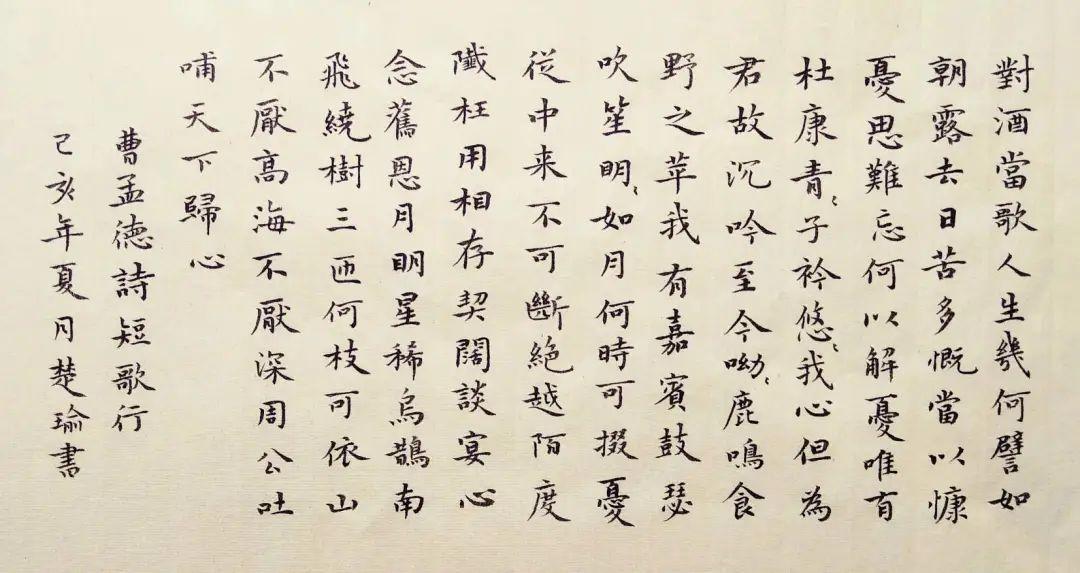 對酒當歌人生幾何譬如
朝露去日苦多慨當以慷
憂思難忘何以解憂唯有
杜康青〻子衿悠〻我心但為
君故沉吟至今呦〻鹿鳴食
野之苹我有嘉賓鼓瑟
吹笙明〻如月何時可掇憂
從中来不可斷絕越陌度
阡枉用相存契闊談宴心
念舊恩月明星稀烏鵲南
飛繞樹三匝何枝可依山
不厭高海不厭深周公吐
哺天下歸心
曹孟德詩短歌行
己亥年夏月楚瑜書